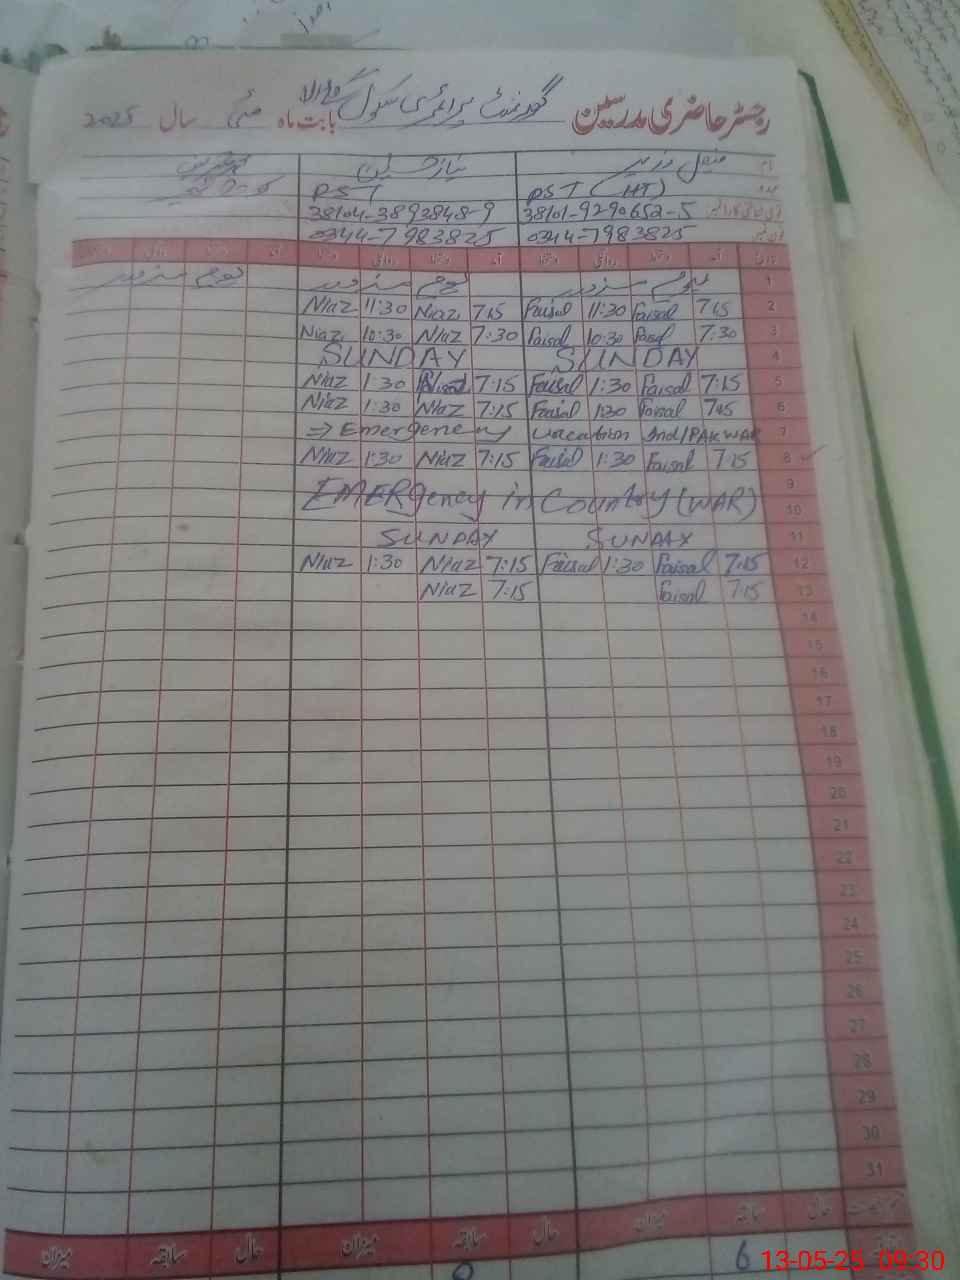 رجسٹر حاضری مدرسین گورنمنٹ پرائمری سکول بابت ماہ مئی سال 2025
نام فیصل وزیر نیاز حسین
عہدہ PST (HT) PST
38101-9290652-5 38104-3893848-9
0344-7983825 0344-7983825
1 یوم مزدور یوم مزدور یوم مزدور
2 7:15 Faisal 11:30 Faisal 7:15 Niaz 11:30 Niaz
3 7:30 Faisal 10:30 Faisal 7:30 Niaz 10:30 Niaz
4 SUNDAY SUNDAY
5 7:15 Faisal 1:30 Faisal 7:15 1:30 Niaz
6 7:15 Faisal 1:30 Faisal 7:15 Niaz 1:30 Niaz
7 => Emergency vacation Ind/PAK WAR
8 7:15 Faisal 1:30 Faisal 7:15 Niaz 1:30 Niaz
9
EMERgency in Country (WAR)
10
11 SUNDAY SUNDAY
12 7:15 Faisal 1:30 Faisal 7:15 Niaz 1:30 Niaz
13 7:15 Faisal 7:15 Niaz
14
15
16
17
18
19
20
21
22
23
24
25
26
27
28
29
30
31
حال سابقہ میزان حال سابقہ میزان حال سابقہ میزان
6 0
13-05-25 09:30